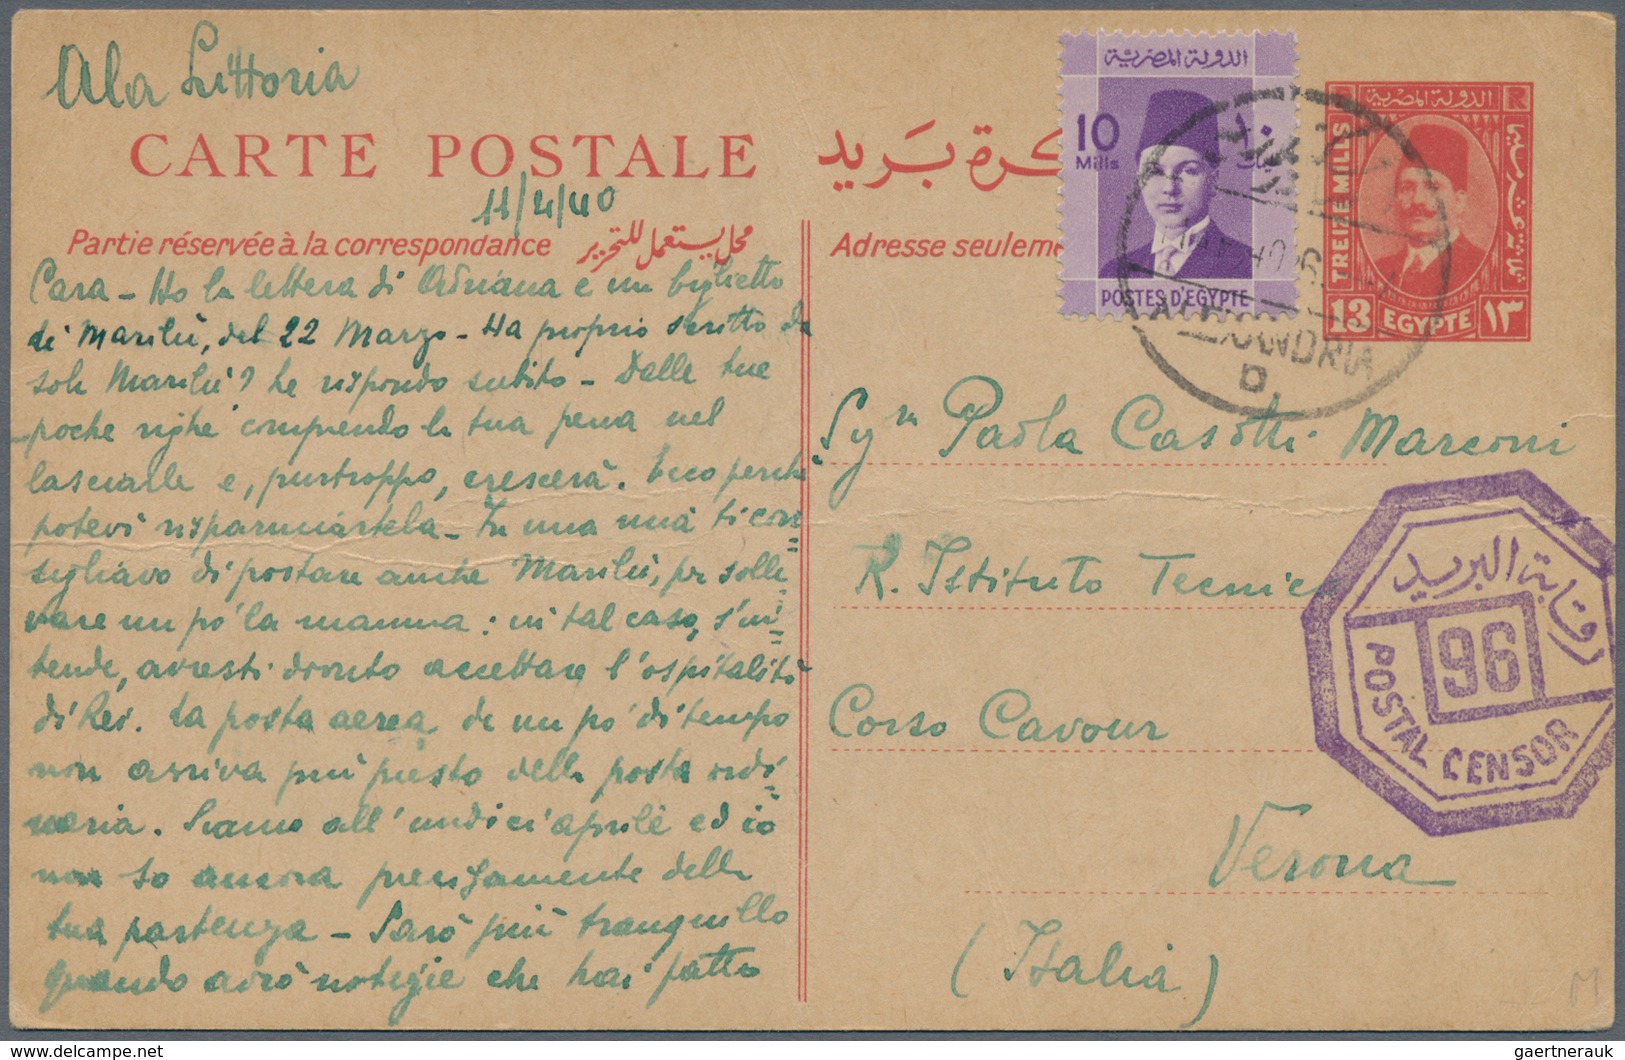 Ala Littoria
CARTE POSTALE
كرة بريد
11/4/40
Partie réservée à la correspondance
محل يستعمل للتحرير
Adresse seuleme
الدولة المصرية
10
Mills
POSTES D'EGYPTE
الدولة المصرية
TREIZE MILLS
13 EGYPTE ١٣
ALEXANDRIA
D
Cara - Ho la lettera di Adriana e un biglietto
di Marilù, del 22 Marzo - Ha proprio scritto da
sola Marilù? Le rispondo subito - Dalle tue
poche righe comprendo la tua pena nel
lasciarle e, purtroppo, crescerà. Ecco perchè
potevi risparmiartela - In una mia ti con=
sigliavo di portare anche Marilù, per solle
vare un po' la mamma: in tal caso, s'in=
tende, avresti dovuto accettare l'ospitalità
di Rei. La posta aerea da un po' di tempo
non arriva più presto della posta ordi=
naria. Siamo all'undici aprile ed io
non so ancora precisamente della
tua partenza - Sarò più tranquillo
quando avrò notizie che hai fatto
Paola Casotti Marconi
R. Istituto Tecnico
Corso Cavour
Verona
(Italia)
رقابة البريد
96
POSTAL CENSOR
M
gaertnerauk
gaertnerauk